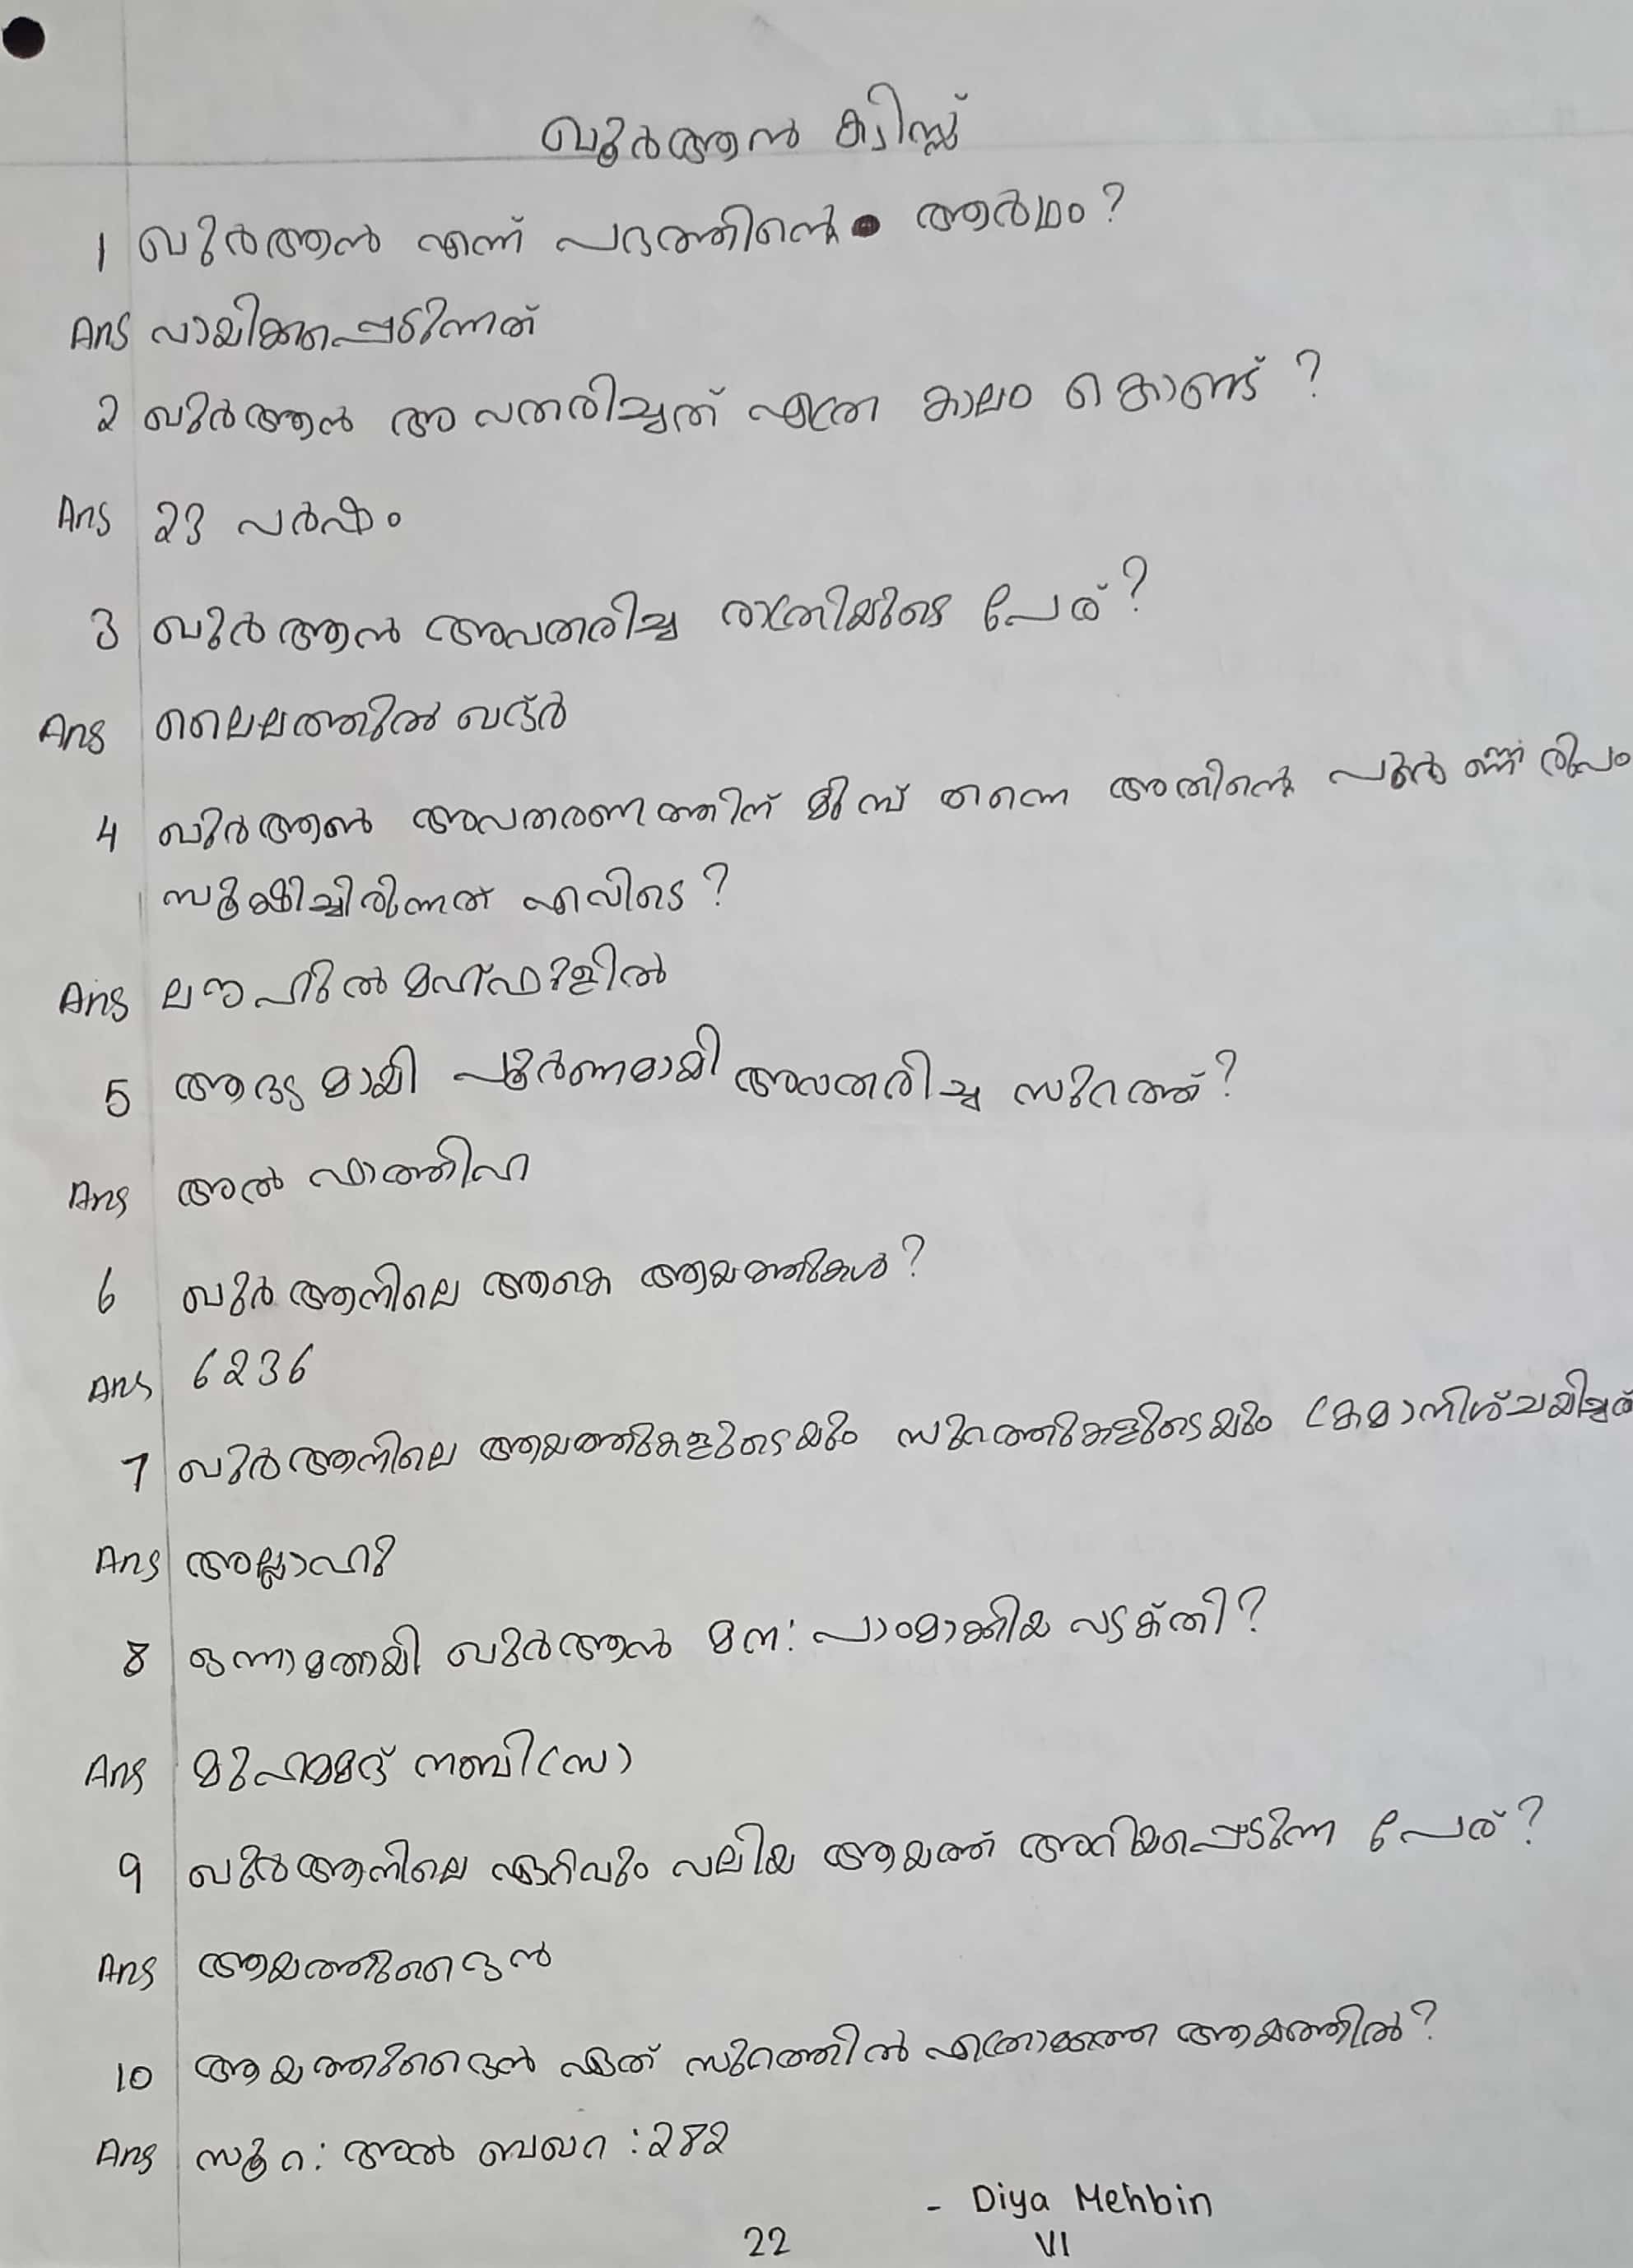 ഖൂർആൻ ക്വിസ്സ്
1 ഖുർആൻ എന്ന് പദത്തിന്റെ ആർഥം?
Ans വായിക്കപ്പെടുന്നത്
2 ഖുർആൻ അവതരിച്ചത് എത്ര കാലം കൊണ്ട്?
Ans 23 വർഷം
3 ഖുർആൻ അവതരിച്ച രാത്രിയുടെ പേര്?
Ans ലൈലത്തുൽ ഖദ്ർ
4 ഖുർആൺ അവതരണത്തിന് മുമ്പ് തന്നെ അതിന്റെ പൂർണ്ണ രൂപം
സൂക്ഷിച്ചിരുന്നത് എവിടെ?
Ans ലൗഹുൽ മഹ്ഫുളിൽ
5 ആദ്യമായി പൂർണമായി അവതരിച്ച സുറത്ത്?
Ans അൽ ഫാത്തിഹ
6 ഖുർആനിലെ ആകെ ആയത്തുകൾ?
Ans 6236
7 ഖുർആനിലെ ആയത്തുകളുടെയും സുറത്തുകളുടെയും ക്രമാനിശ്ചയിച്ചത്
Ans അല്ലാഹു
8 ഒന്നാമതായി ഖുർആൻ മന: പാഠമാക്കിയ വ്യക്തി?
Ans മുഹമ്മദ് നബി(സ)
9 ഖുർആനിലെ ഏറിവും വലിയ ആയത്ത് അറിയപ്പെടുന്ന പേര്?
Ans ആയത്തുദ്ദൈൻ
10 ആയത്തുദ്ദൈൻ ഏത് സുറത്തിൽ എത്രാക്കത്ത ആയത്തിൽ?
Ans സൂറ: അൽ ബഖറ :282
- Diya Mehbin
22 VI